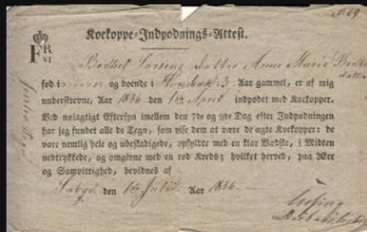 No 69
F R
VI
Kockoppe-Indpodnings-Attest.
Bodsel Larsens Datter Anne Marie
fød i og boende i 3 Aar gammel, er af mig
underskrevne, Aar 1836 den 1ste April indpodet med Kockopper.
Ved nøiagtigt Eftersyn imellem den 7de og 9de Dag efter Indpodningen
har jeg fundet alle de Tegn, som vise dem at være de ægte Kockopper: de
vare nemlig hele og ubeskadigede, opfyldte med en klar Vædske, i Midten
nedtrykkede, og omgivne med en rød Kreds; hvilket herved, paa Ære
og Samvittighed, bevidnes af
den Juli Aar 1836.